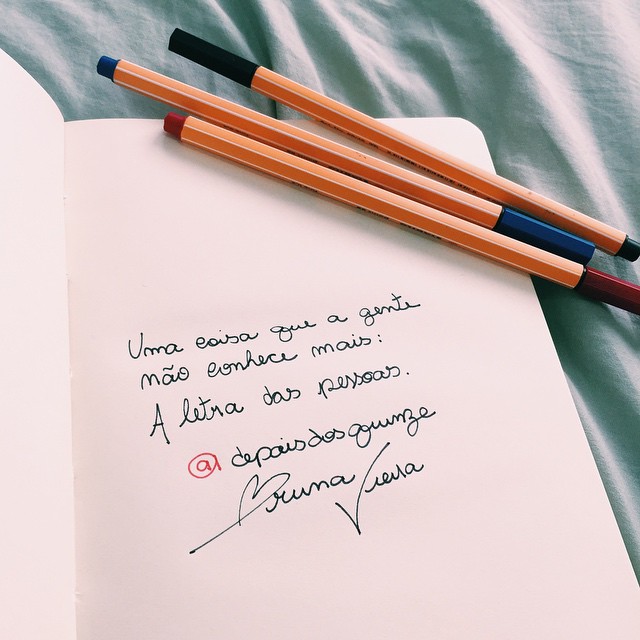 Uma coisa que a gente
não conhece mais:
A letra das pessoas.
@depoisdosquinze
Bruna Vieira